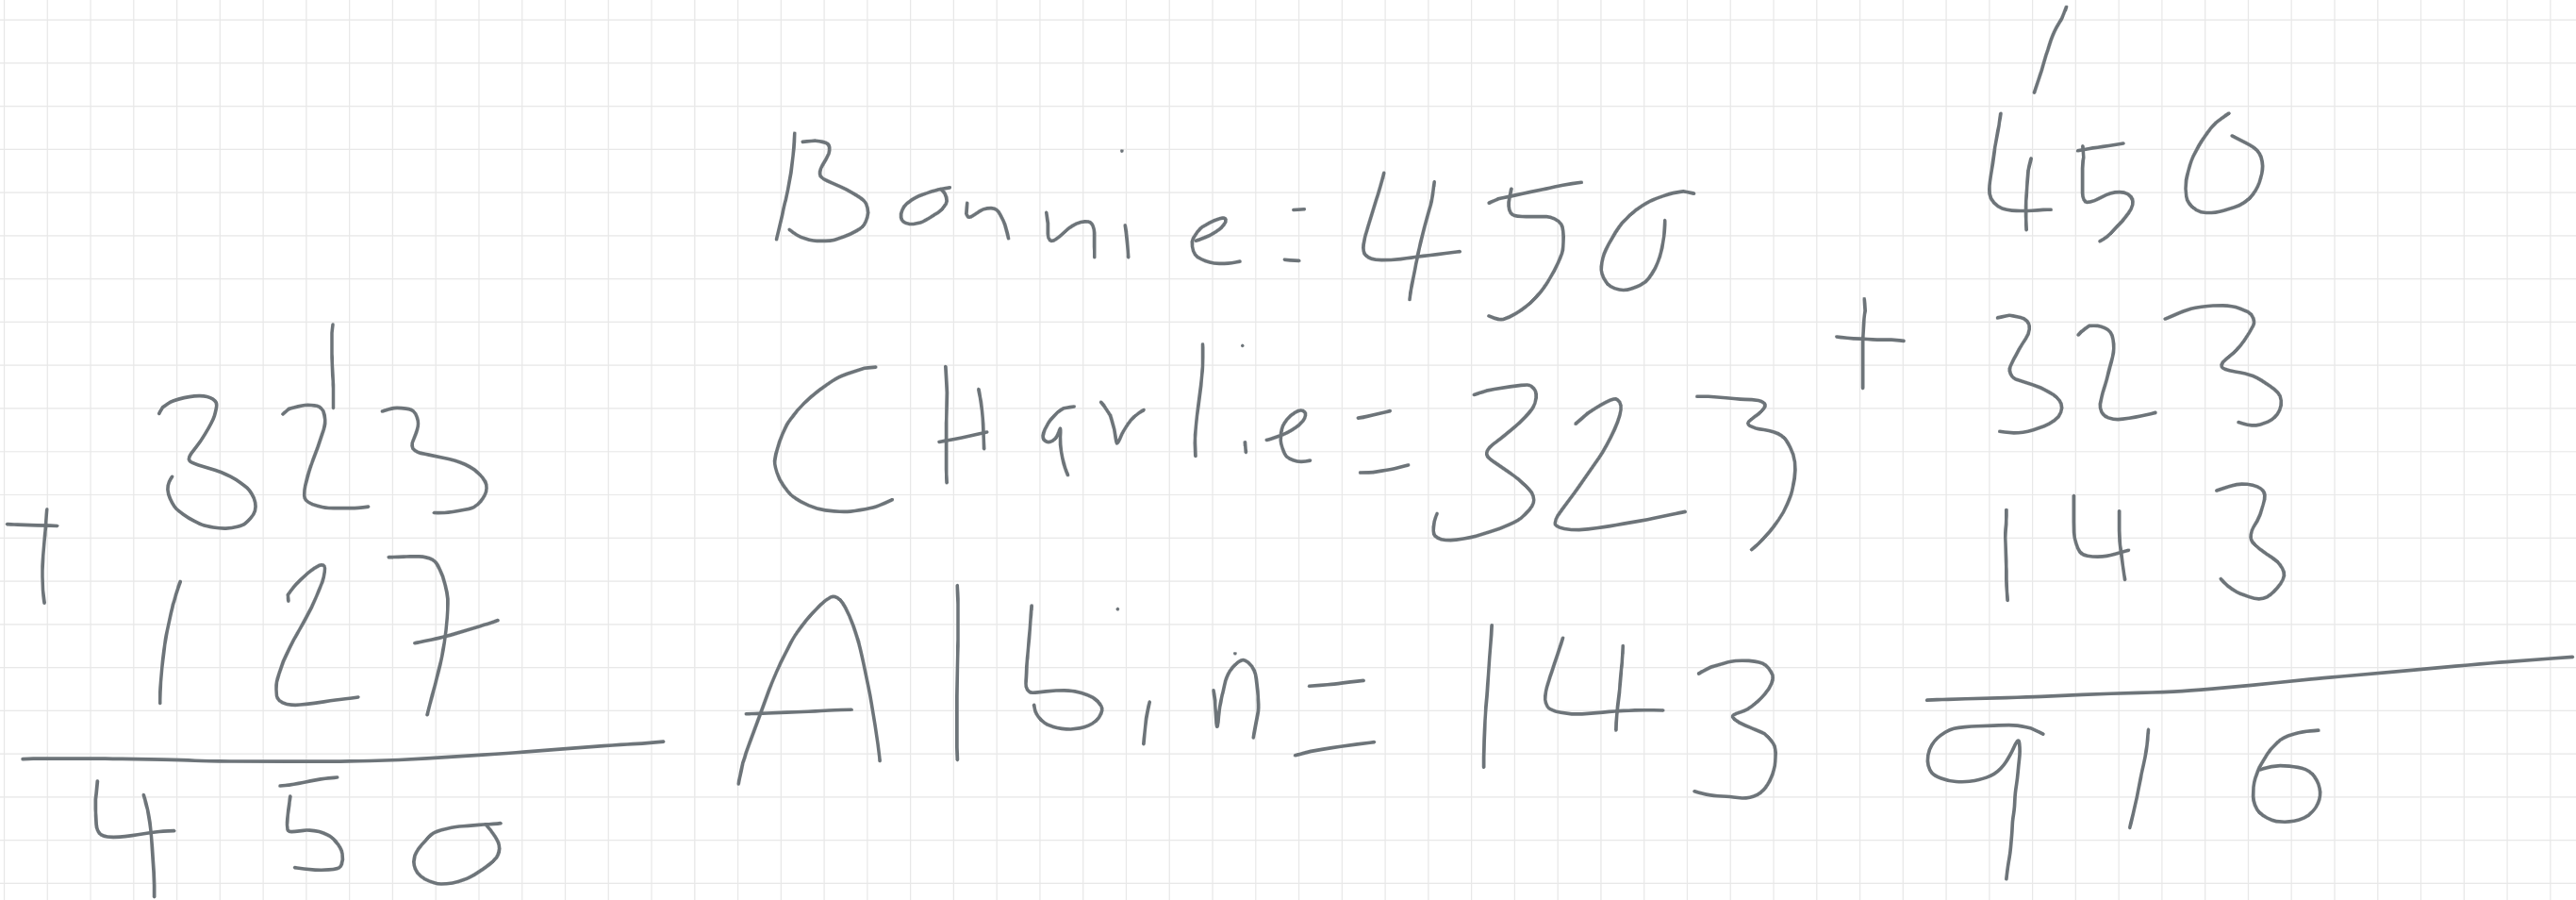 1
323
+ 127
450
Bonnie = 450
CHarlie = 323
Albin = 143
1
450
+ 323
143
916